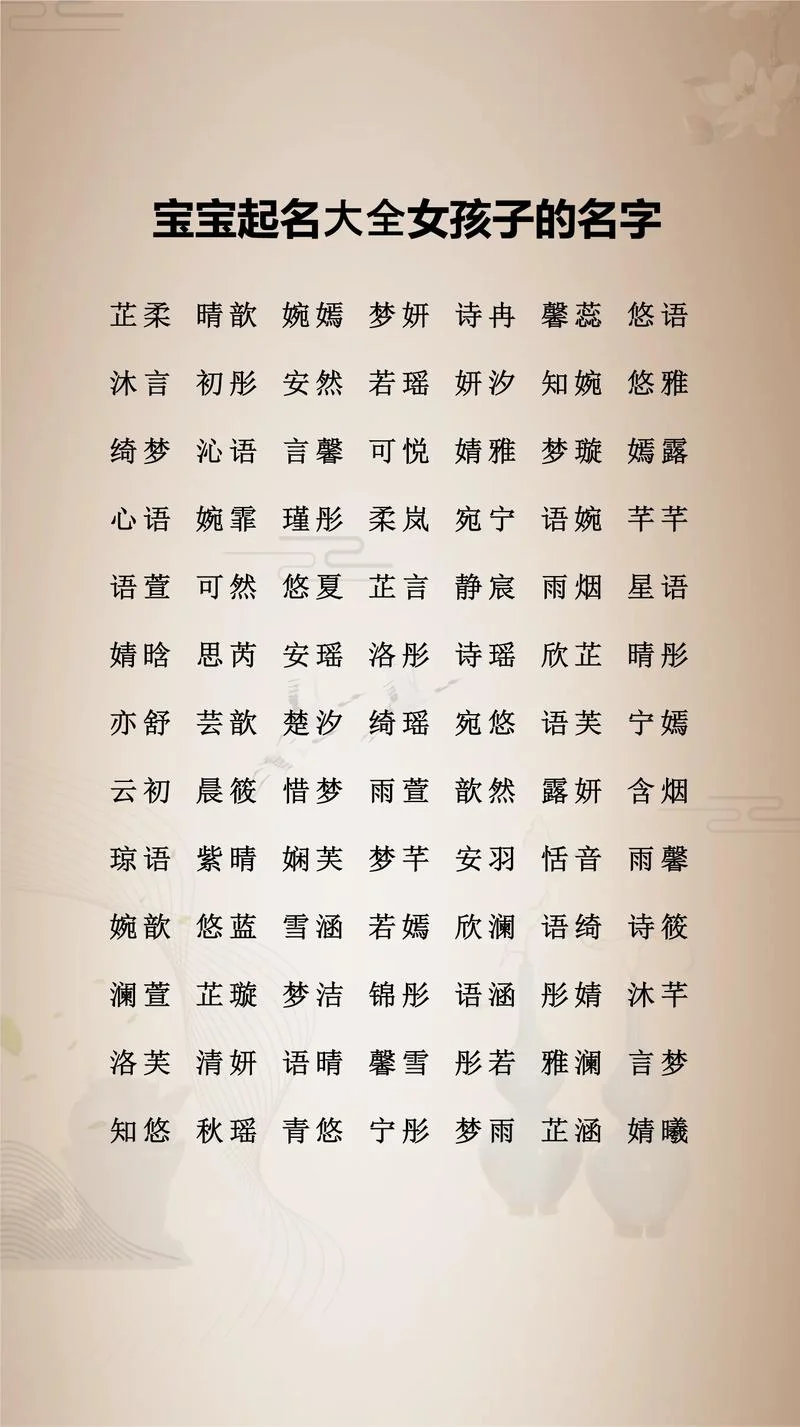 宝宝起名大全女孩子的名字
芷柔 晴歆 婉嫣 梦妍 诗冉 馨蕊 悠语
沐言 初彤 安然 若瑶 妍汐 知婉 悠雅
绮梦 沁语 言馨 可悦 婧雅 梦璇 嫣露
心语 婉霏 瑾彤 柔岚 宛宁 语婉 芊芊
语萱 可然 悠夏 芷言 静宸 雨烟 星语
婧晗 思芮 安瑶 洛彤 诗瑶 欣芷 晴彤
亦舒 芸歆 楚汐 绮瑶 宛悠 语芙 宁嫣
云初 晨筱 惜梦 雨萱 歆然 露妍 含烟
琼语 紫晴 娴芙 梦芊 安羽 恬音 雨馨
婉歆 悠蓝 雪涵 若嫣 欣澜 语绮 诗筱
澜萱 芷璇 梦洁 锦彤 语涵 彤婧 沐芊
洛芙 清妍 语晴 馨雪 彤若 雅澜 言梦
知悠 秋瑶 青悠 宁彤 梦雨 芷涵 婧曦